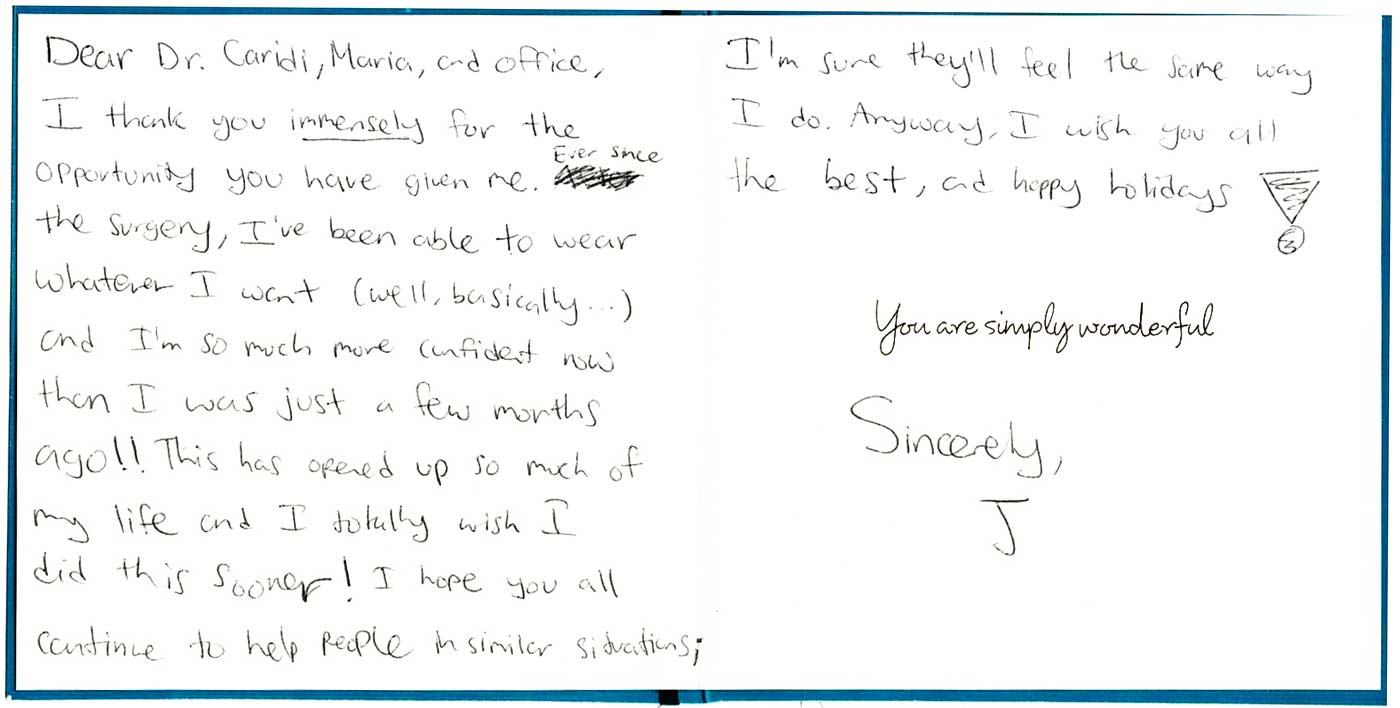 Dear Dr. Caridi, Maria, and office,
I thank you immensely for the
opportunity you have given me. Ever since
the surgery, I've been able to wear
whatever I want (well, basically...)
and I'm so much more confident now
then I was just a few months
ago!! This has opened up so much of
my life and I totally wish I
did this sooner! I hope you all
continue to help people in similar situations;
I'm sure they'll feel the same way
I do. Anyway, I wish you all
the best, and happy holidays!
You are simply wonderful
Sincerely,
J